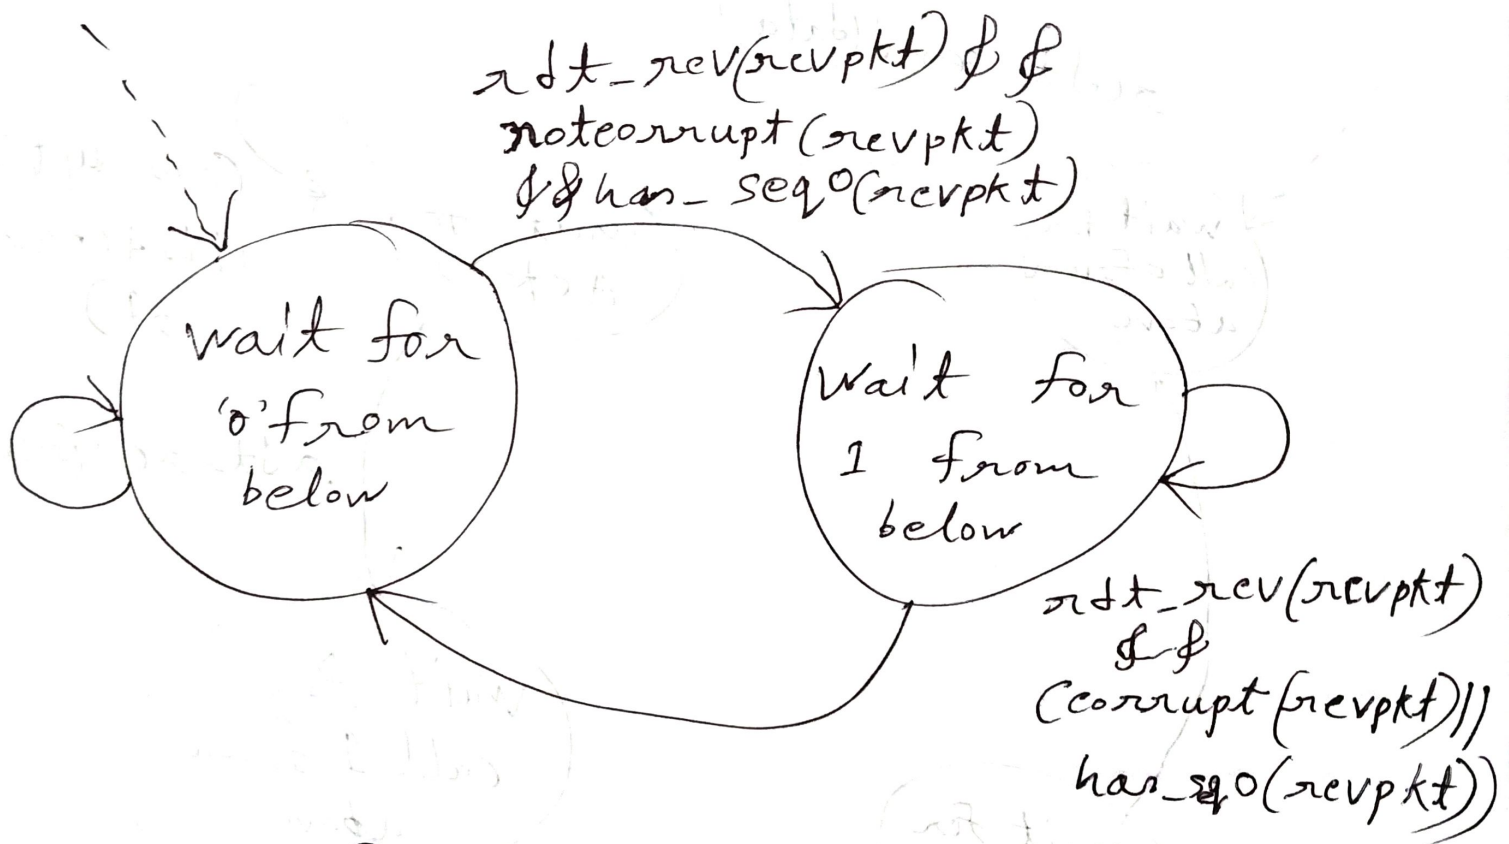 rdt_rcv(rcvpkt) &&
notcorrupt(rcvpkt)
&& has_seq0(rcvpkt)
wait for
'0' from
below
Wait for
1 from
below
rdt_rcv(rcvpkt)
&&
(corrupt(rcvpkt)||
has_sq0(rcvpkt))